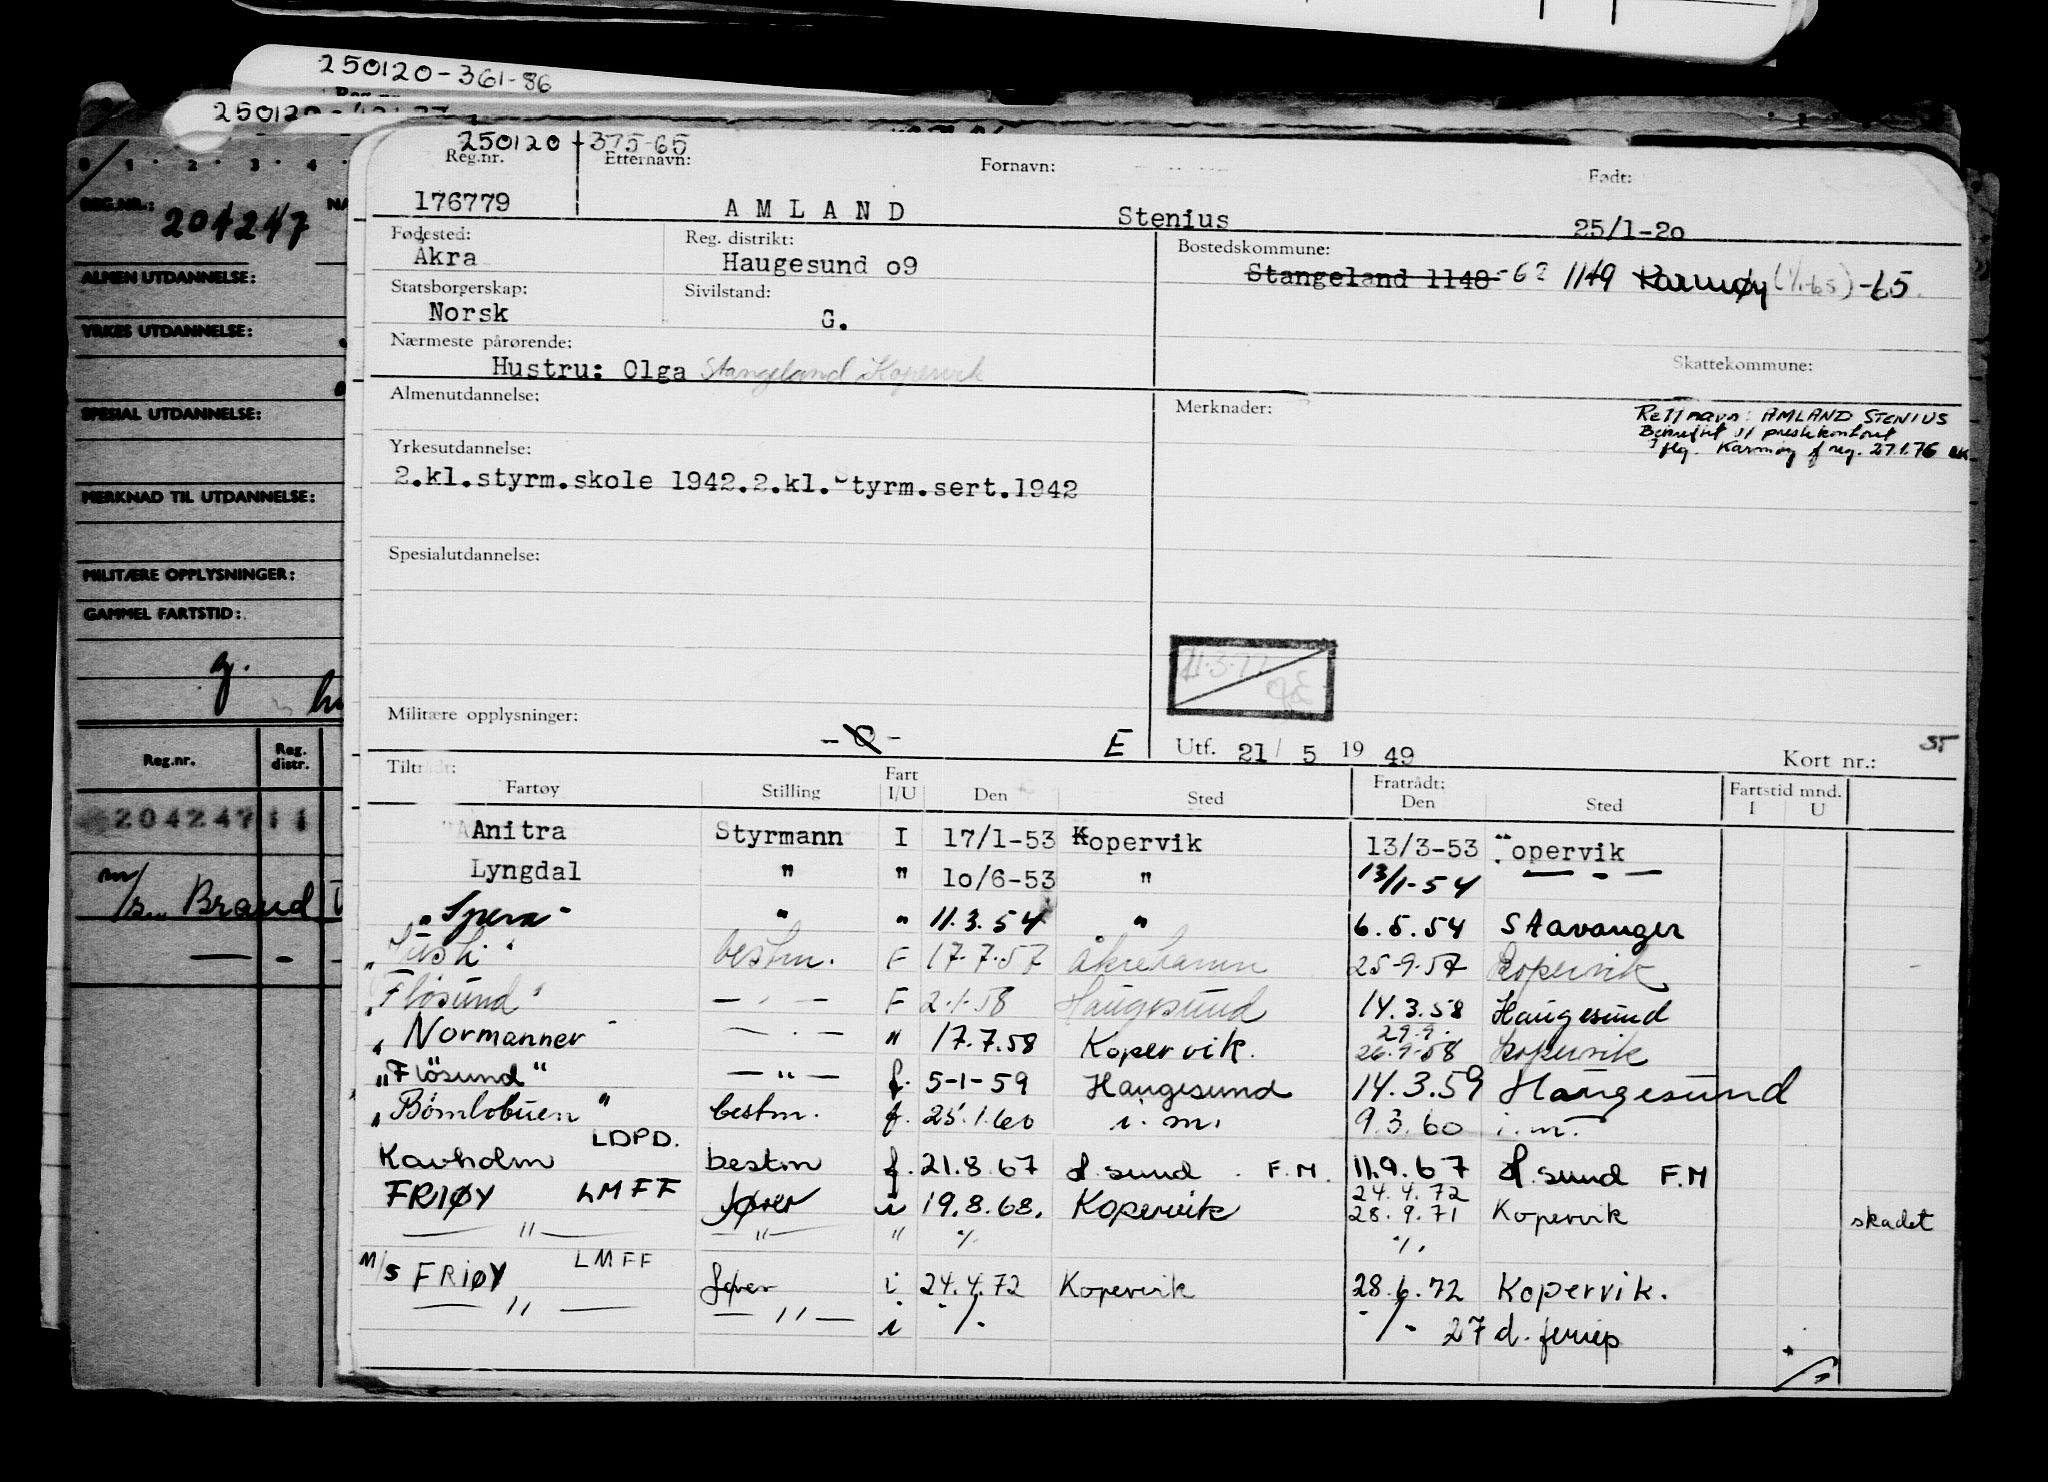 250120-361-86
250120
250120-375-65
Reg.nr. Etternavn: Fornavn: Født:
176779 AMLAND Stenius 25/1-20
Fødested: Reg. distrikt: Bostedskommune:
Åkra Haugesund 09 Stangeland 1148 -62 1149 Karmøy (1/1-65) -65.
Statsborgerskap: Sivilstand:
Norsk G.
Nærmeste pårørende: Skattekommune:
Hustru: Olga Stangeland Kopervik
Almenutdannelse: Merknader:
Rett navn: AMLAND STENIUS
Bekreftet presskontoret
Iflg. Karmøy f reg. 27.1.76
Yrkesutdannelse:
2.kl.styrm.skole 1942.2.kl.styrm.sert.1942
Spesialutdannelse:
11.3.77
Militære opplysninger:
- 0 - E Utf. 21/ 5 19 49 Kort nr.:
Tiltrådt: Fratrådt:
Fartøy Stilling Fart I/U Den Sted Den Sted Fartstid mnd. I U
Anitra Styrmann I 17/1-53 Kopervik 13/3-53 opervik
Lyngdal " " 10/6-53 " 13/1-54 — - —
"Spera" " " 11.3.54 " 6.5.54 Stavanger
bestm. F 17.7.57 Åkrehamn 25-9-57 Kopervik
"Fløsund" — " — F 2.1.58 Haugesund 14.3.58 Haugesund
"Normanner" — " — " 17.7.58 Kopervik. 29.9. 26.9-58 Kopervik
"Flösund" — " — f. 5-1-59 Haugesund 14.3.59 Haugesund
"Bömlobuen" bestm. f. 25.1.60 i.m. 9.3.60 i.m.
Kavholm LDPD. bestm f. 21.8.67 H.sund F.M. 11.9.67 H.sund F.M
FRIØY LMFF fører i 19.8.68. Kopervik 24.4.72 28.9.71 Kopervik skadet
— " — — " — " ·/. ·/.
M/S FRIØY LMFF fører i 24.4.72 Kopervik 28.6.72 Kopervik.
— " — — " — i ·/. ·/. 27 d. feriep
REG.NR.: 204247
ALMEN UTDANNELSE:
YRKES UTDANNELSE:
SPESIAL UTDANNELSE:
MERKNAD TIL UTDANNELSE:
MILITÆRE OPPLYSNINGER:
GAMMEL FARTSTID:
Reg.nr. Reg. distr.
204247 11
m/s. Brand
— -